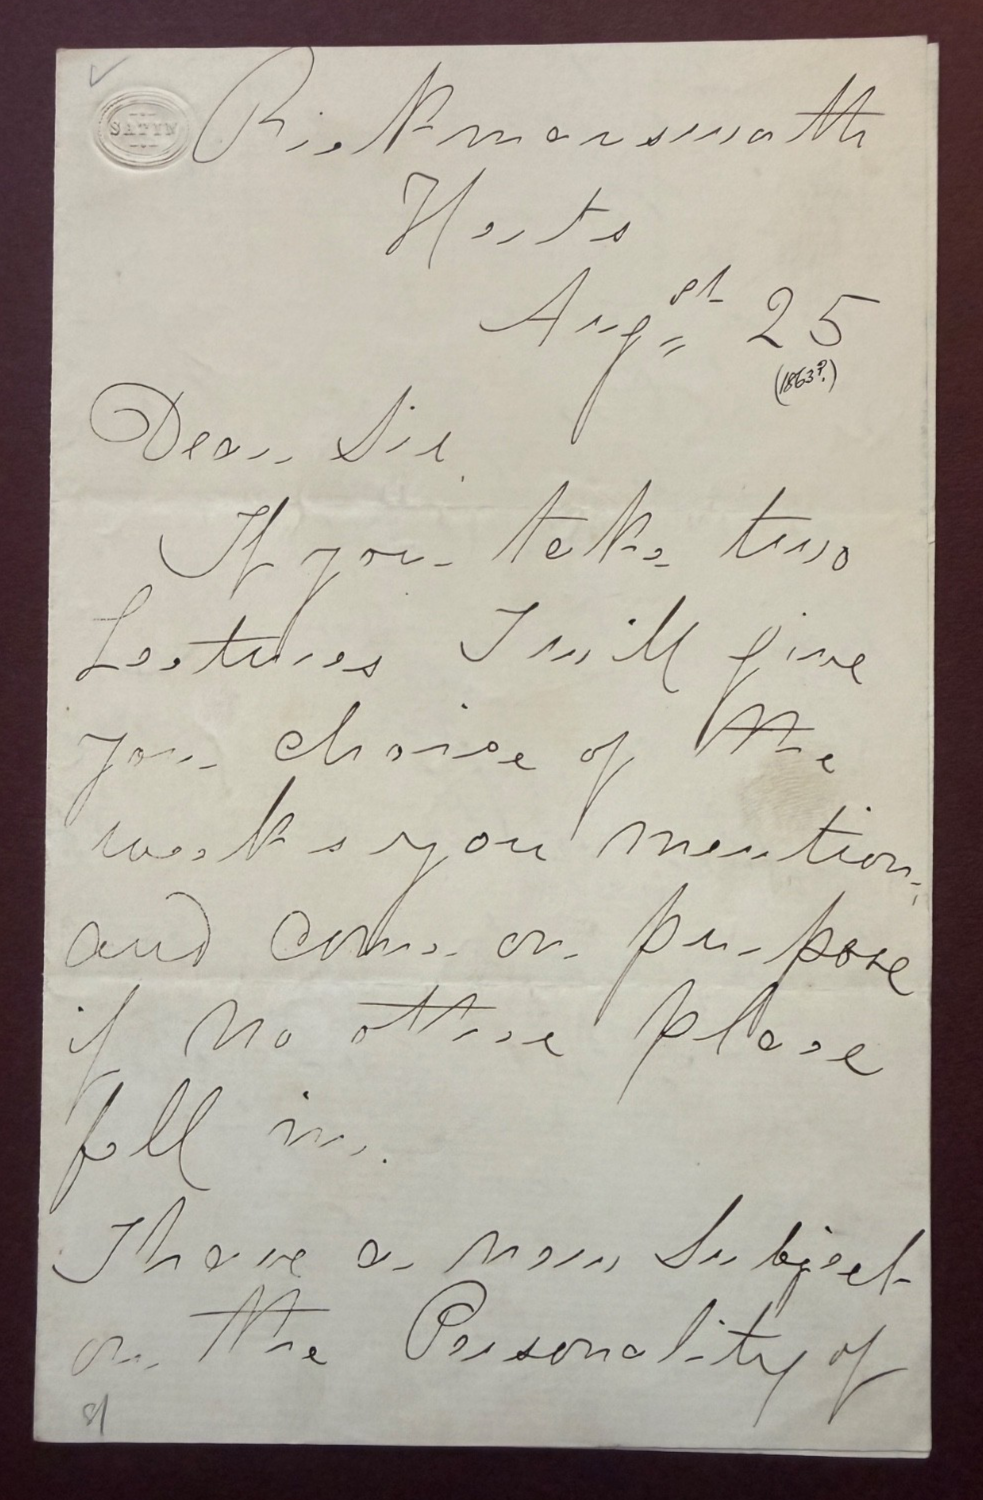 SATIN
Rickmansworth
Herts
Augst 25
(1863?)
Dear Sir
If you take two
Lectures I will give
you choice of the
weeks you mention,
and come on purpose
if no other place
fall in.
I have a new Subject
on the Personality of